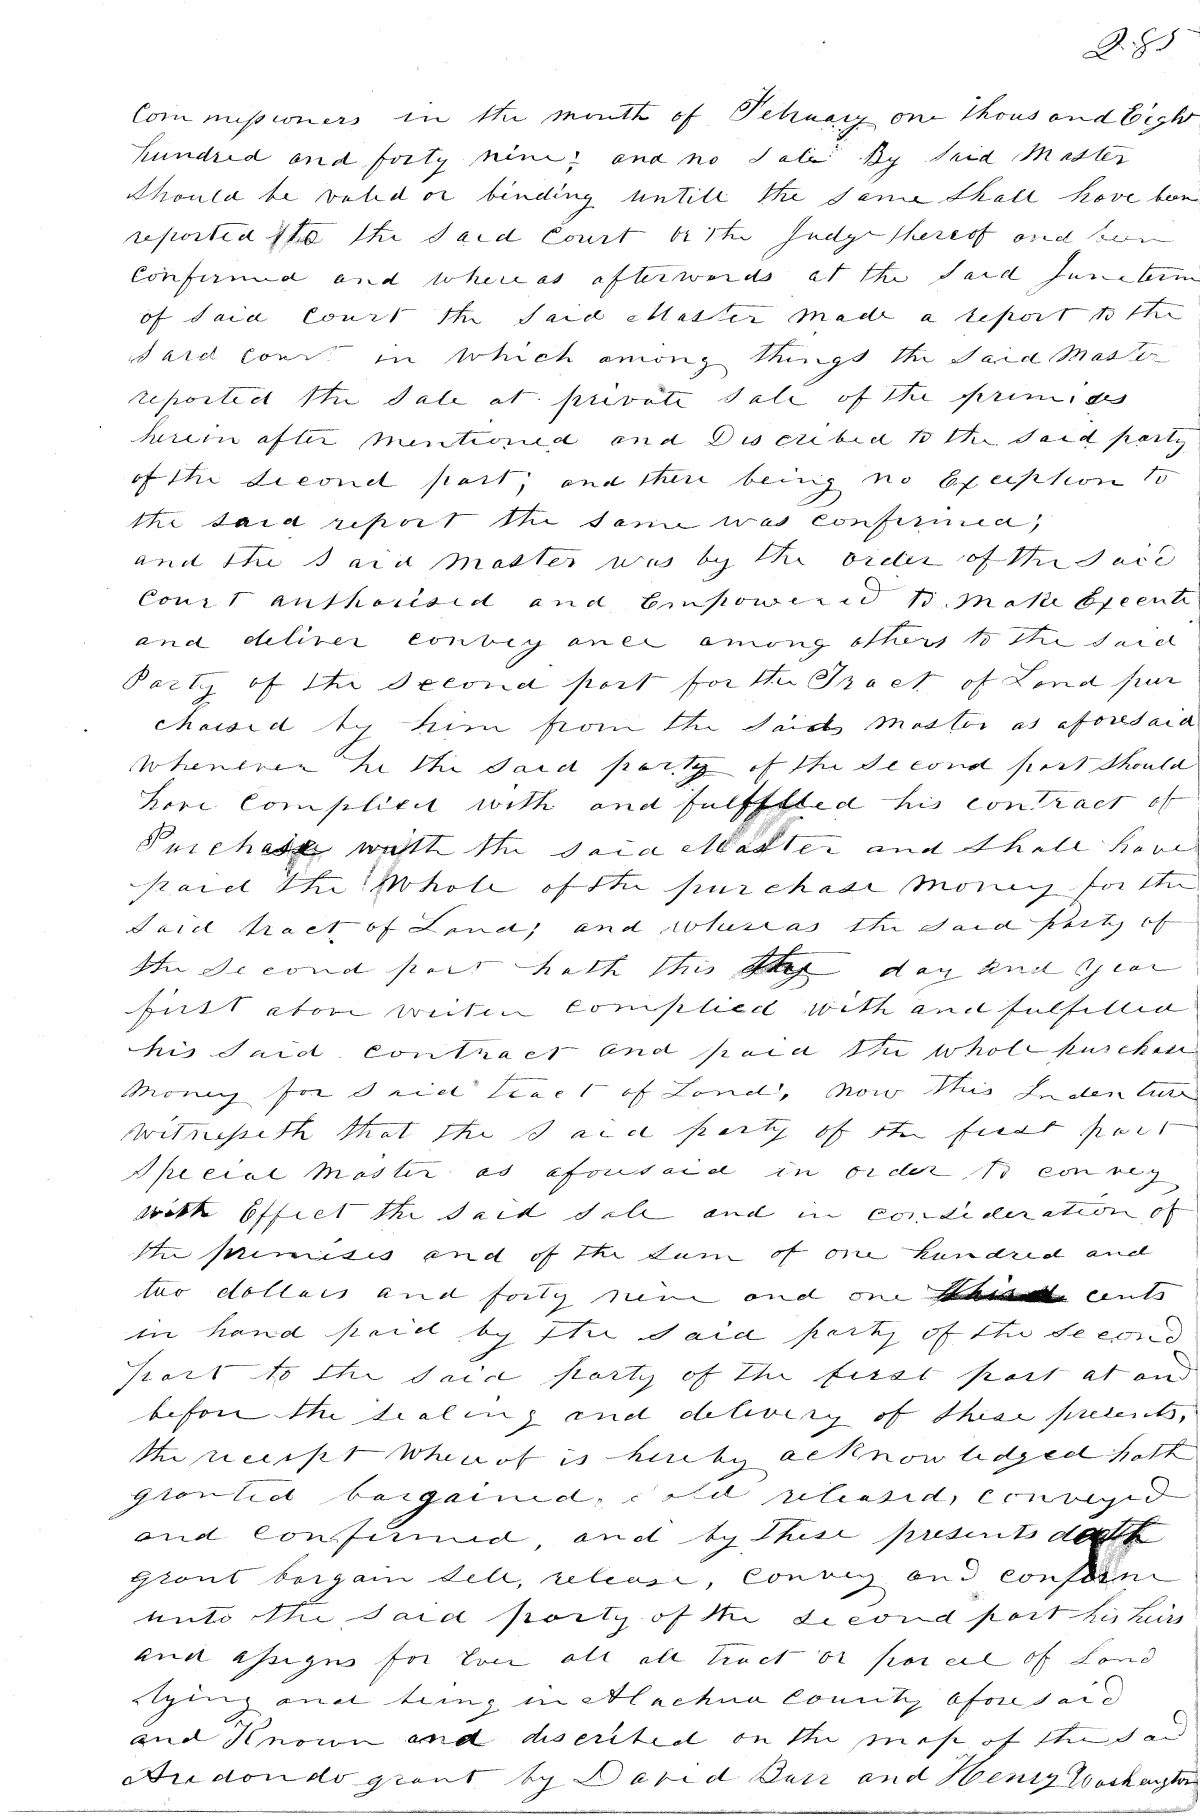 285
Commissioners in the month of February one thousand Eight
hundred and forty nine; and no Sale By Said Master
Should be valed or binding untill the same Shall have been
reported to the Said Court or the Judge thereof and been
Confirmed and where as afterwards at the Said June term
of Said Court the Said Master made a report to the
Said Court in which among things the Said Master
reported the Sale at private Sale of the premises
herein after mentioned and Discribed to the Said party
of the Second part; and there being no Exception to
the said report the Same was confirmed;
and the Said Master was by the order of the Said
Court authorised and Empowered to make Execute
and deliver convey ance among others to the Said
Party of the Second part for the Tract of Land pur
chased by him from the Said Master as aforesaid
Whenever he the Said party of the Second part Should
have Complied with and fulfilled his contract of
Purchase with the Said Master and Shall have
paid the Whole of the purchase money for the
Said tract of Land; and whereas the Said Party of
the Second part hath this day and year
first above writen complied with and fulfilled
his Said contract and paid the whole purchase
money for Said tract of Land; now this Indenture
Witnesseth that the Said party of the first part
Special Master as aforesaid in order to convey
with Effect the Said Sale and in consideration of
the premises and of the Sum of one hundred and
two dollars and forty nine and one third cents
in hand paid by the Said party of the Second
part to the Said party of the first part at and
before the sealing and delivery of these presents,
the receipt Whereof is hereby acknowledged hath
granted bargained, Sold released, conveyed
and confirmed, and by these presents doth
grant bargain Sell, release, convey and confirm
unto the Said party of the Second part his heirs
and assigns for Ever all all tract or parcel of Land
lying and being in Alachua County aforesaid
and Known and discribed on the map of the Said
Aredondo grant by David Burr and Henry Washington